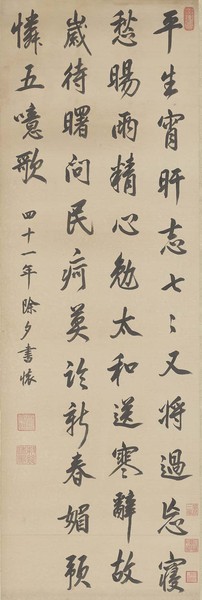 平生宵旰志七〻又將過忘寢
愁暘雨精心勉太和送寒辭故
歲待曙問民疴莫論新春媚預
憐五噫歌
四十一年除夕書懷